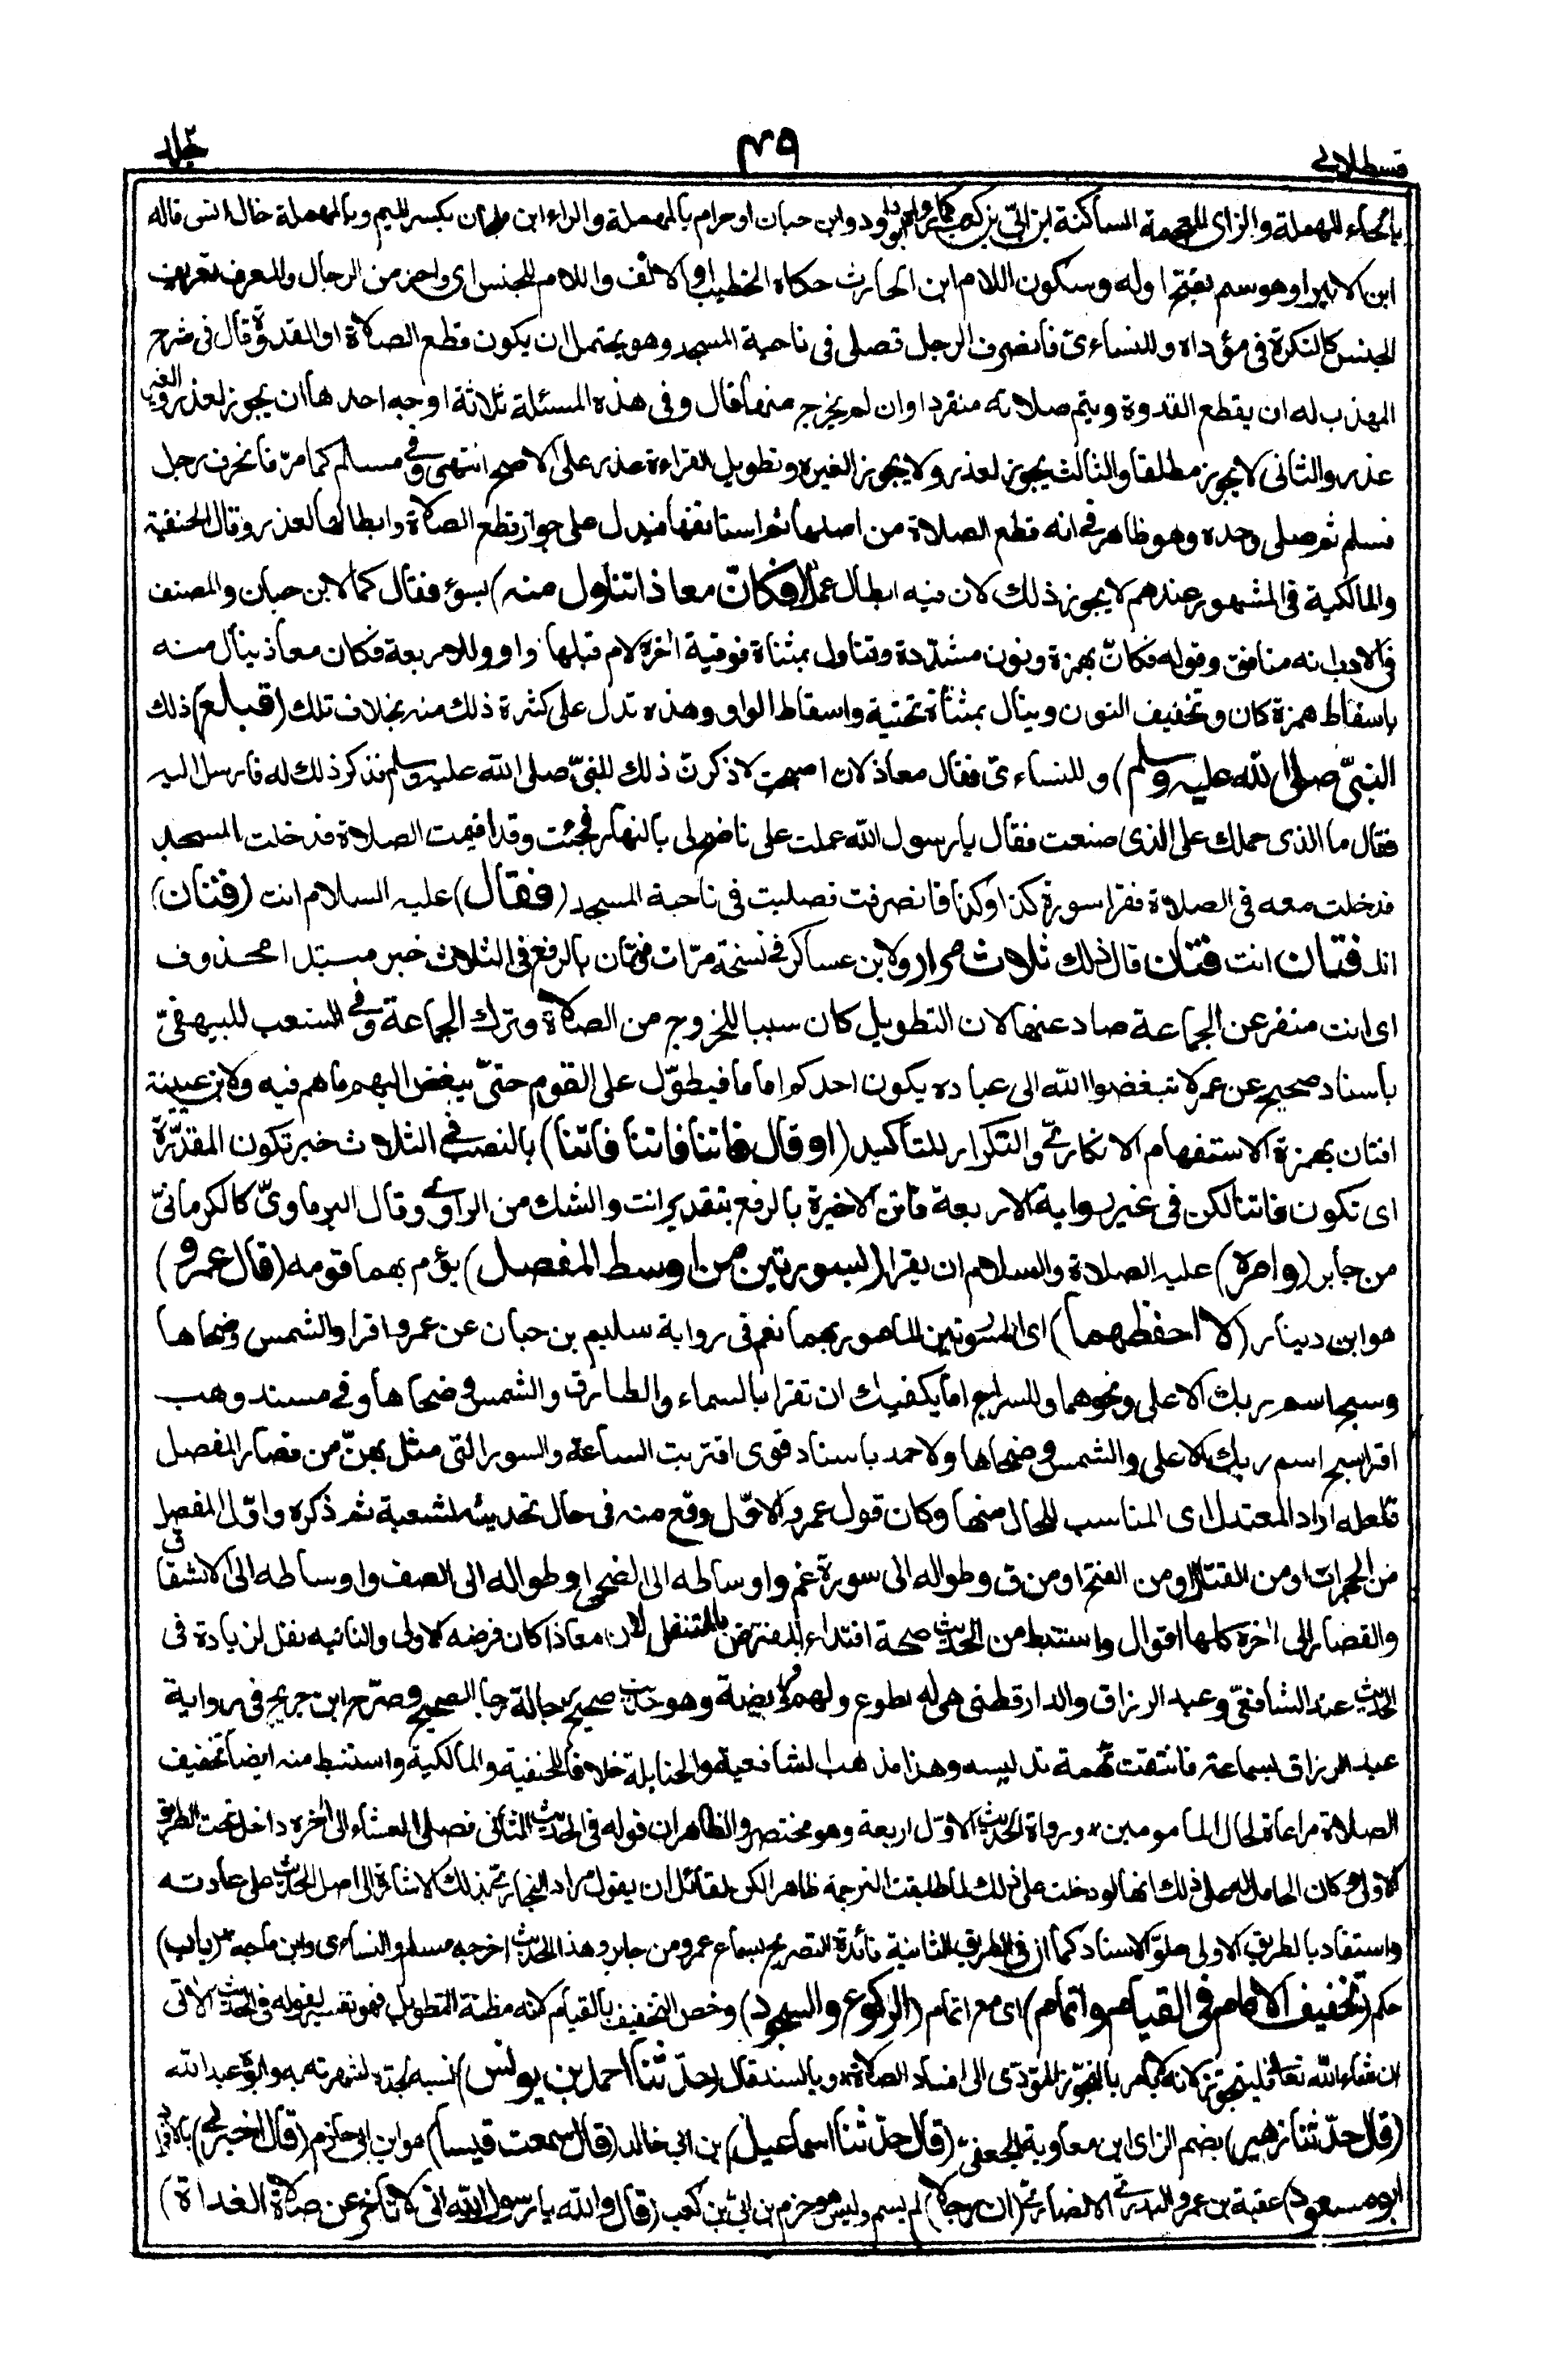 قسطلانی
٤٩
جلد ٢
بالحاء المهملة والزاى المعجمة الساكنة ابن ابىّ بن كعب كما رواه ابو داود وابن حبان او حرام بالمهملة والراء ابن ملحان بكسر الميم وبالمهملة خال انس قاله
ابن الاثير او هو سلم بفتح اوله وسكون اللام ابن الحارث حكاه الخطيب او الالف واللام للجنس اى واحد من الرجال والمعرف تعريف
الجنس كالنكرة فى مؤداه وللنساءى فانصرف الرجل فصلى فى ناحية المسجد وهو يحتمل ان يكون قطع الصلاة او القدوة قال فى شرح
المهذب له ان يقطع القدوة ويتم صلاته منفردا وان لم يخرج منها قال وفى هذه المسئلة ثلاثة اوجه احدها ان يجوز لعذر ولغير
عذر والثانى لا يجوز مطلقا والثالث يجوز لعذر ولا يجوز لغيره وتطويل القراءة عذر على الاصح انتهى وفى مسلم كما مرّ فانحرف رجل
فسلم ثم صلى وحده وهو ظاهر فى انه قطع الصلاة من اصلها ثم استانفها فيدل على جواز قطع الصلاة وابطالها لعذر وقال الحنفية
والمالكية فى المشهور عندهم لا يجوز ذلك لان فيه ابطال عمل (فكانّ معاذا تناول منه) بسوء فقال كما لابن حبان والمصنف
فى الادب انه منافق وقوله فكانّ بهمزة ونون مشدّدة وتناول بمثناة فوقية اخره لام قبلها واو وللاربعة فكان معاذ ينال منه
باسقاط همزة كان وتخفيف النون وينال بمثناة تحتية واسقاط الواو وهذه تدل على كثرة ذلك منه بخلاف تلك (فبلغ) ذلك
النبىّ صلى الله عليه وسلم) وللنساءىّ فقال معاذ لان اصبحت لاذكرنّ ذلك للنبىّ صلى الله عليه وسلم فذكر ذلك له فارسل اليه
فقال ما الذى حملك على الذى صنعت فقال يا رسول الله عملت على ناضح لى بالنهار فجئت وقد اقيمت الصلاة فدخلت المسجد
فدخلت معه فى الصلاة فقرا سورة كذا وكذا فانصرفت فصليت فى ناحية المسجد (فقال) عليه السلام انت (فتان)
انت فتان انت فتان قال ذلك ثلاث مرار ولابن عساكر فى نسخة مرّات فتان بالرفع فى الثلاث خبر مبتدا محذوف
اى انت منفر عن الجماعة صاد عنها لان التطويل كان سببا للخروج من الصلاة وترك الجماعة وفى الشعب للبيهقىّ
باسناد صحيح عن عمر لا تبغضوا الله الى عباده يكون احدكم اماما فيطوّل على القوم حتىّ يبغض اليهم ما هم فيه ولابن عيينة
افتان بهمزة الاستفهام الانكارىّ والتكرار للتاكيد (او قال فاتنا فاتنا فاتنا) بالنصب فى الثلاث خبر تكون المقدّرة
اى تكون فاتنا لكن فى غير رواية الاربعة فاتن الاخيرة بالرفع بتقدير انت والشك من الراوى وقال البرماوىّ كالكرمانىّ
من جابر (وامره) عليه الصلاة والسلام ان يقرا (بسورتين من اوسط المفصل) يؤم بهما قومه (قال عمرو)
هو ابن دينار (لا احفظهما) اى السورتين المامور بهما نعم فى رواية سليم بن حبان عن عمرو اقرا والشمس وضحاها
وسبح اسم ربك الاعلى ونحوهما وللسراج اما يكفيك ان تقرا بالسماء والطارق والشمس وضحاها وفى مسند وهب
اقرا سبح اسم ربك الاعلى والشمس وضحاها ولاحمد باسناد قوى اقتربت الساعة والسور التى مثل بهنّ من قصار المفصل
فلعله اراد المعتدل اى المناسب للحال منها وكان قول عمرو الاوّل وقع منه فى حال تحديثه لشعبة ثم ذكره واوّل المفصل
من الحجرات او من القتال او من الفتح او من ق وطواله الى سورة عم واوساطه الى الضحى او طواله الى الصف واوساطه الى الانشقاق
والقصار الى اخره كلها اقوال واستنبط من الحديث صحة اقتداء المفترض بالمتنفل لان معاذا كان فرضه الاولى والثانية نفل لزيادة فى
الحديث عند الشافعىّ وعبد الرزاق والدارقطنى هى له تطوع ولهم فريضة وهو حديث صحيح رجاله رجال الصحيح وصرّح ابن جريج فى رواية
عبد الرزاق بسماعه فانتفت تهمة تدليسه وهذا مذهب الشافعية والحنابلة خلافا للحنفية والمالكية واستنبط منه ايضا تخفيف
الصلاة مراعاة لحال المامومين ورواة الحديث الاوّل اربعة وهو مختصر والظاهر ان قوله فى الحديث الثانى فصلى العشاء الى اخره داخل تحت الطريق
الاولى وكان الحامل له على ذلك انها لو دخلت على ذلك لما طابقت الترجمة ظاهرا لكن لقائل ان يقول مراد البخارى بذلك الاشارة الى اصل الحديث على عادته
واستفاد بالطريق الاولى علوّ الاسناد كما ان فى الطريق الثانية فائدة التصريح بسماع عمرو من جابر وهذا الحديث اخرجه مسلم والنساءى وابن ماجه (باب)
حكم (تخفيف الامام فى القيام واتمام) اى مع اتمام (الركوع والسجود) وخص التخفيف بالقيام لانه مظنة التطويل فهو تفسير لقوله فى الحديث الاتى
ان شاء الله تعالى فليتجوّز لانه لا يامر بالتجوّز المؤدّى الى افساد الصلاة وبالسند قال (حدّثنا احمد بن يونس) نسبه لجدّه لشهرته به وابوه عبد الله
(قال حدّثنا زهير) بضم الزاى ابن معاوية الجعفىّ (قال حدّثنا اسماعيل) بن ابى خالد (قال سمعت قيسا) هو ابن ابى حازم (قال اخبرنى) بالافراد
ابو مسعود) عقبة بن عمرو البدرىّ الانصارىّ (ان رجلا) لم يسم وليس هو حزم بن ابىّ بن كعب (قال والله يا رسول الله انى لاتاخر عن صلاة الغداة)